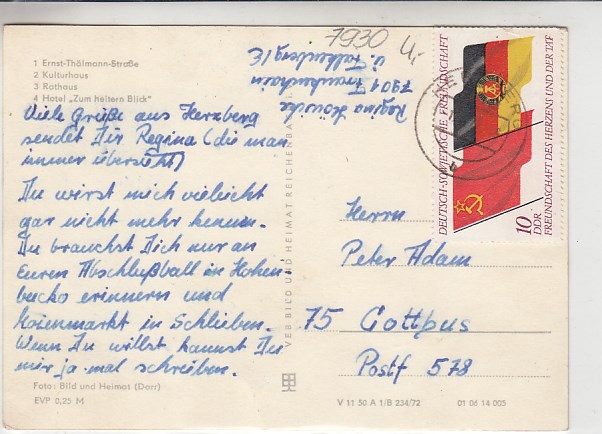 1 Ernst-Thälmann-Straße
2 Kulturhaus
3 Rathaus
4 Hotel „Zum heitern Blick"
Viele Grüße aus Herzberg
sendet Dir Regina (die man
immer übersieht)
Du wirst mich vieleicht
gar nicht mehr kennen.
Du brauchst Dich nur an
Euren Abschlußball in Hohen-
bucko erinnern und
Moienmarkt in Schlieben.
Wenn Du willst kannst Du
mir ja mal schreiben.
Foto: Bild und Heimat (Darr)
EVP 0,25 M
VEB BILD UND HEIMAT REICHENBA
7930
4,-
Regina
7901 Frankenhain
ü. Falkenberg/E
DEUTSCH-SOWJETISCHE FREUNDSCHAFT
10 DDR
FREUNDSCHAFT DES HERZENS UND DER TAT
Herrn
Peter Adam
75 Cottbus
Postf 578
V 11 50 A 1/B 234/72
01 06 14 005